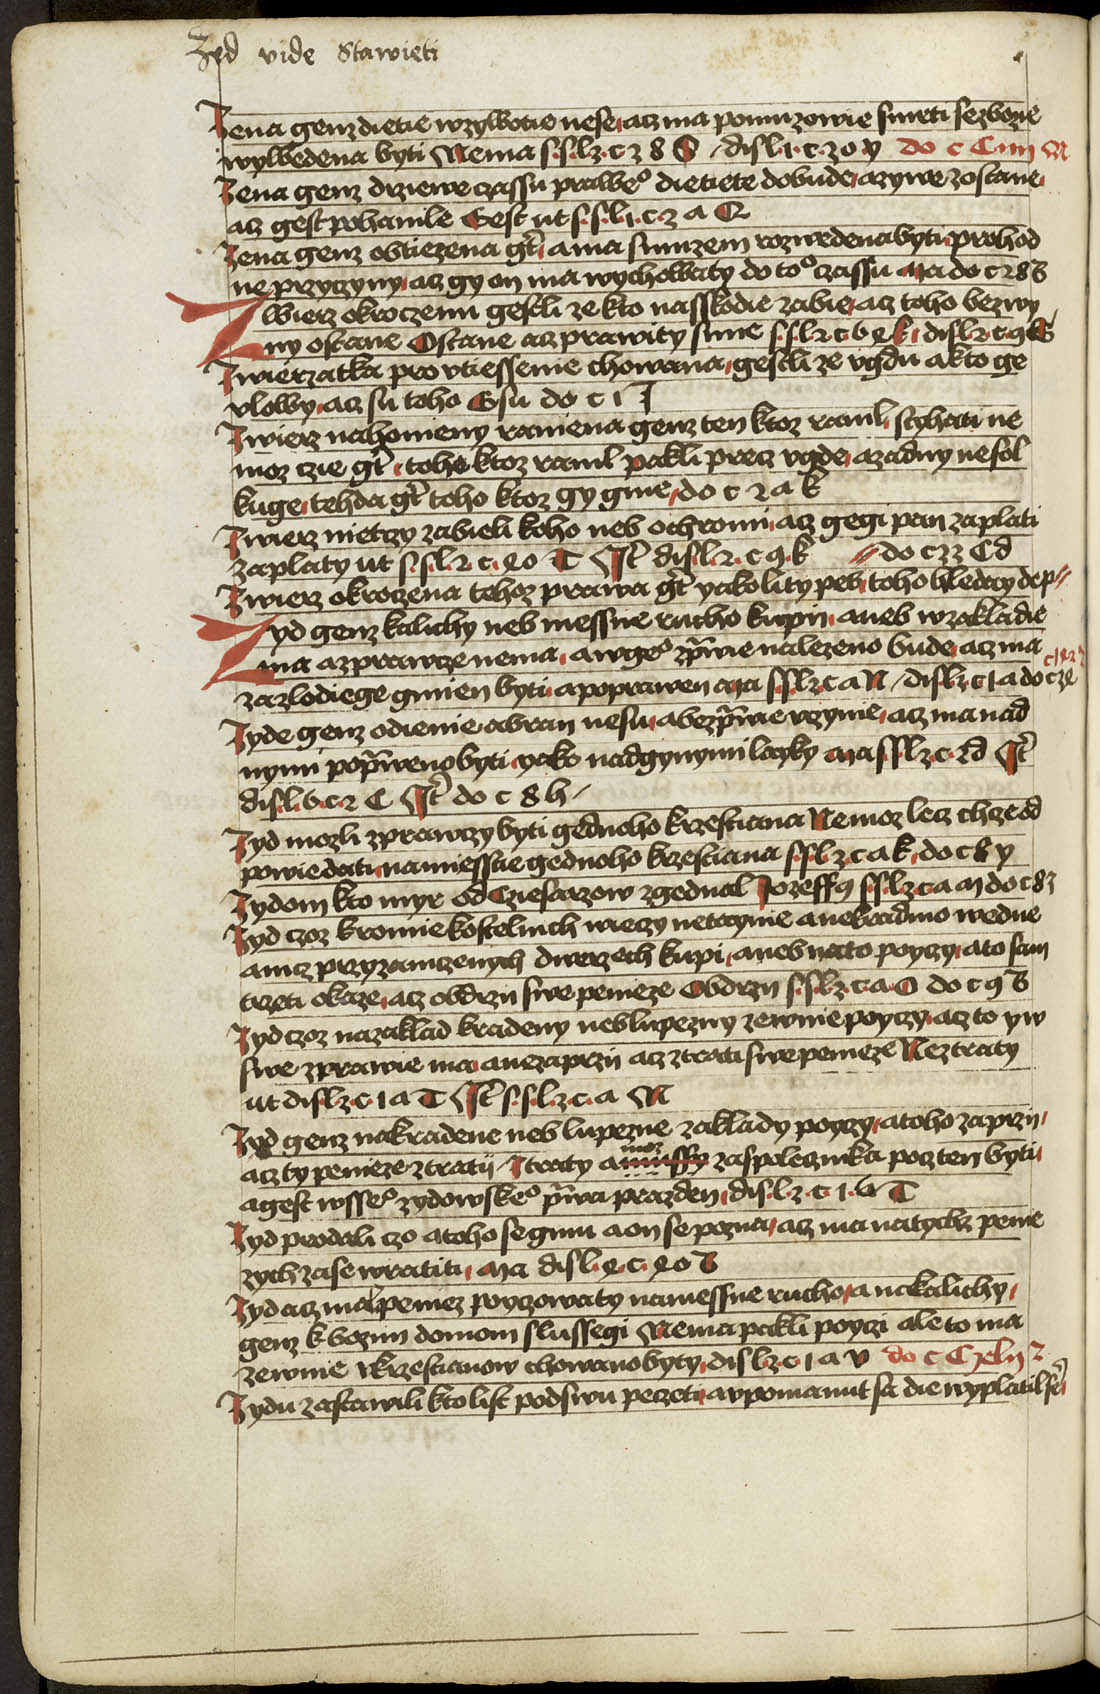 Zed vide Stawieti
Zena genz dietie wzywotie nese acz ma pomuzowie smrti sezbone
wywedena byti Nema s.s.l.z.c.z 8 S disl.1.c.z0 y do c C iiii M
Zena genz drziewe czassu prawe° dietiete dobude azywe zostane
acz gest pohanile Gest ut s.s.l.1.c.z a Q
Zena genz obtiezena gt a ma s muzem rozwedena byti prohod
ne przyczyny acz gy on ma wychowaty do to° czassu Ma do c 28 b
Zwierz okroczenu gestli ze kto nasskodie zabie acz toho bez wy
ny ostane Ostane acz prawity sme s.s.l.2.c.6 e k disl.2.c.9 G
Zwierzatka pro vtiessenie chowana gestli ze vgdu akto ge
vlowy acz su toho Gsu do c 1 T
Zwierz nahomeny raniena genz ten ktoz ranil styhati ne
moz czie gt tohe ktoz ranil pakli precz vgde azadny nesol
kuge tehda gt toho ktoz gy gme do c 2 a k
Zwierz nietczy zabieli koho neb ochromi acz gegi pan zaplati
zaplaty ut s.s.l.2.c.e0 T Jt disl.2.c.9.k do c 33 C d
Zwierz okroczena tehoz prawa gt yakolity pes toho hleday dep
Zyd genz kalichy neb messne rucho kupij aneb w zakladie
ma a zprawcze nema a w ge° zpwie nalezeno bude acz ma
za zlodiege gmien byti a poprawen Ma s.s.l.z.c a N disl.z.c 1 a do c ze
Zyde genz odienie obran nesu a bezpwie vczynie acz ma nad
nymi popweno byti yako nad gynymi layky Ma s.s.l.z.c.2 d Jt
disl.6.c.2 C Jt do c 8 h
Zyd mozli zprawczy byti gednoho krzestiana Nemoz lecz chze od
powiedati na miessce gednoho krzestiana s.s.l.z.c a k do c 8 y
Zydom kto myr od Cziesarzow zgednal Jozeffus s.s.l.z.c.a m do c 83
Zyd czoz kromie kostelnich wieczy netaynie a nekradmo we dne
a nicz przyzamczenych dwerzech kupi aneb na to poyczy a to sam
trzeti okaze acz obdrzij swe penieze Obdrzij s.s.l.z.c.a O do c 9 b
Zyd czoz nazaklad kradeny neb lupezny zewnie poyczy acz to yw
swe zprawie ma a nezaprzij acz ztrati swe penieze Neztraty
ut disl.z.c.1 a T Jt s.s.l.z.c.a N
Zyd genz na kradene neb lupezne zaklady poyczy a toho zaprzij
acz ty penieze ztratij Ztraty a moz zaspoleznika poczten byti
a gest wsse° zydowske° pwa prazden disl.z.c.1.6 T
Zyd prodali czo a toho se gmu a on se pozna acz ma natychz penie
zych zase wratiti Ma disl.e.c.e0 b
Zyd acz ma peniez poyczowaty na messne rucho a na kalichy
genz k bozim domom slussegi Nema pakli poyczi ale to ma
zewnie v krzestianow chowano byty disl.z.c 1 a v do c C xlij 2
Zydu zastawili kto list pod swu peczeti a vpomanut sa die wyplatil se